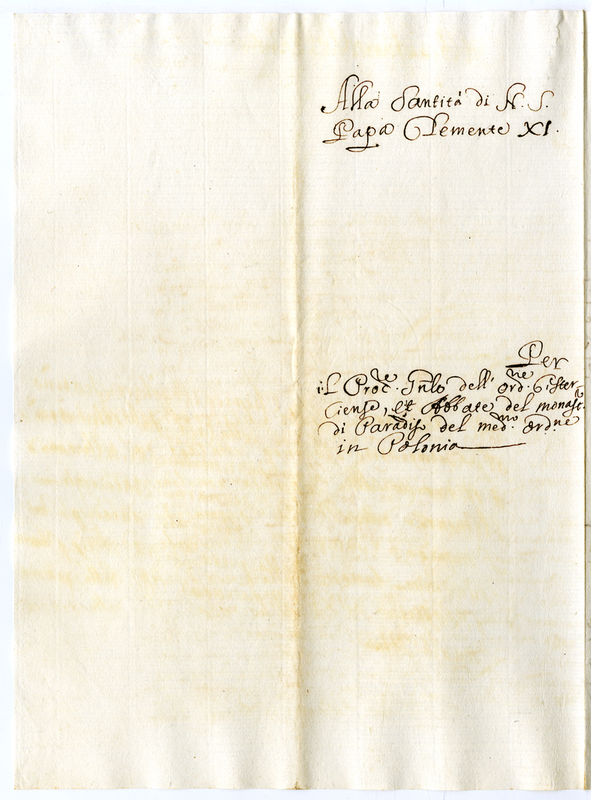 Alla Santità di N. S.
Papa Clemente XI.
Per
il Procre. Gnle dell' Ordne. Cister-
ciense, et Abbate del monastro
di Paradiso del medmo. Ordne
in Polonia